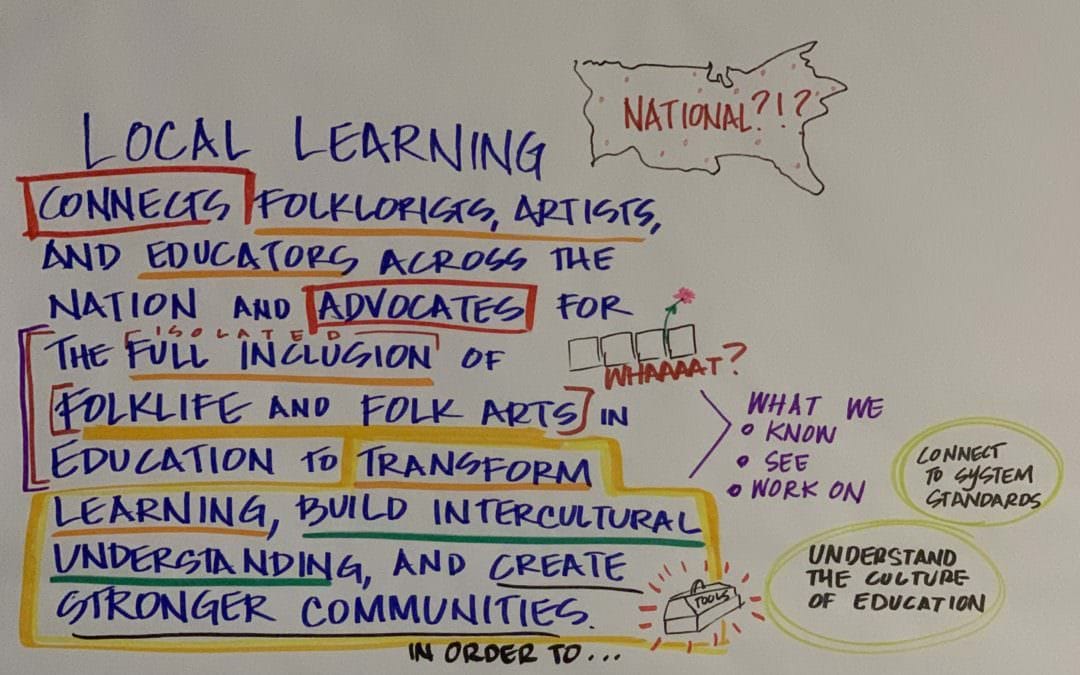 NATIONAL?!?
LOCAL LEARNING
CONNECTS FOLKLORISTS, ARTISTS,
AND EDUCATORS ACROSS THE
NATION AND ADVOCATES FOR
ISOLATED
THE FULL INCLUSION OF
WHAAAAT?
FOLKLIFE AND FOLK ARTS IN
EDUCATION TO TRANSFORM
LEARNING, BUILD INTERCULTURAL
UNDERSTANDING, AND CREATE
STRONGER COMMUNITIES.
IN ORDER TO...
WHAT WE
• KNOW
• SEE
• WORK ON
CONNECT
TO SYSTEM
STANDARDS
TOOLS
UNDERSTAND
THE CULTURE
OF EDUCATION